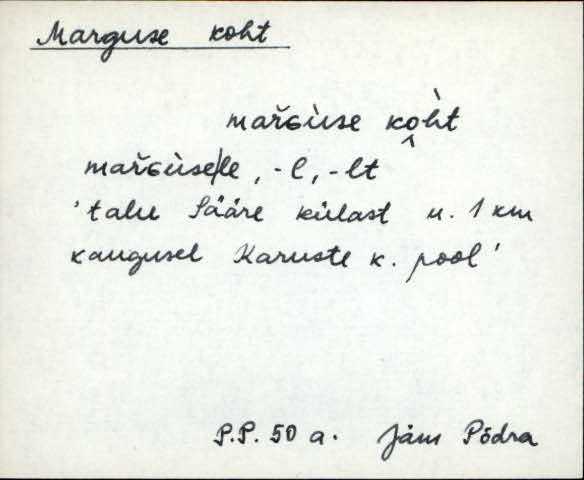 Marguse koht
mar̆ɢùse ko̭h̀t
mar̆ɢùse|le, -l, -lt
'talu Sääre külast u. 1 km
kaugusel Karuste k. pool'
P.P. 50 a. Jäm Põdra